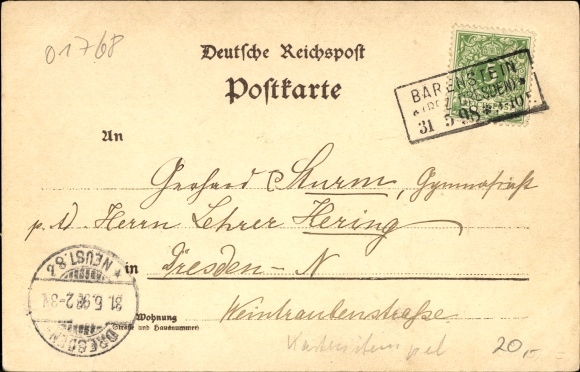 01768
Deutsche Reichspost
Postkarte
5
BÄRENSTEIN
(BEZ. DRESDEN)
31 5 98 * 9-10 V.
An
Gerhard Sturm, Gymnasiast
p. A. Herrn Lehrer Hering
in Dresden-N
Weintraubenstraße
Wohnung
(Straße und Hausnummer)
DRESDEN-
31.5.98. 2-3N
* NEUST. 8 *
20,-